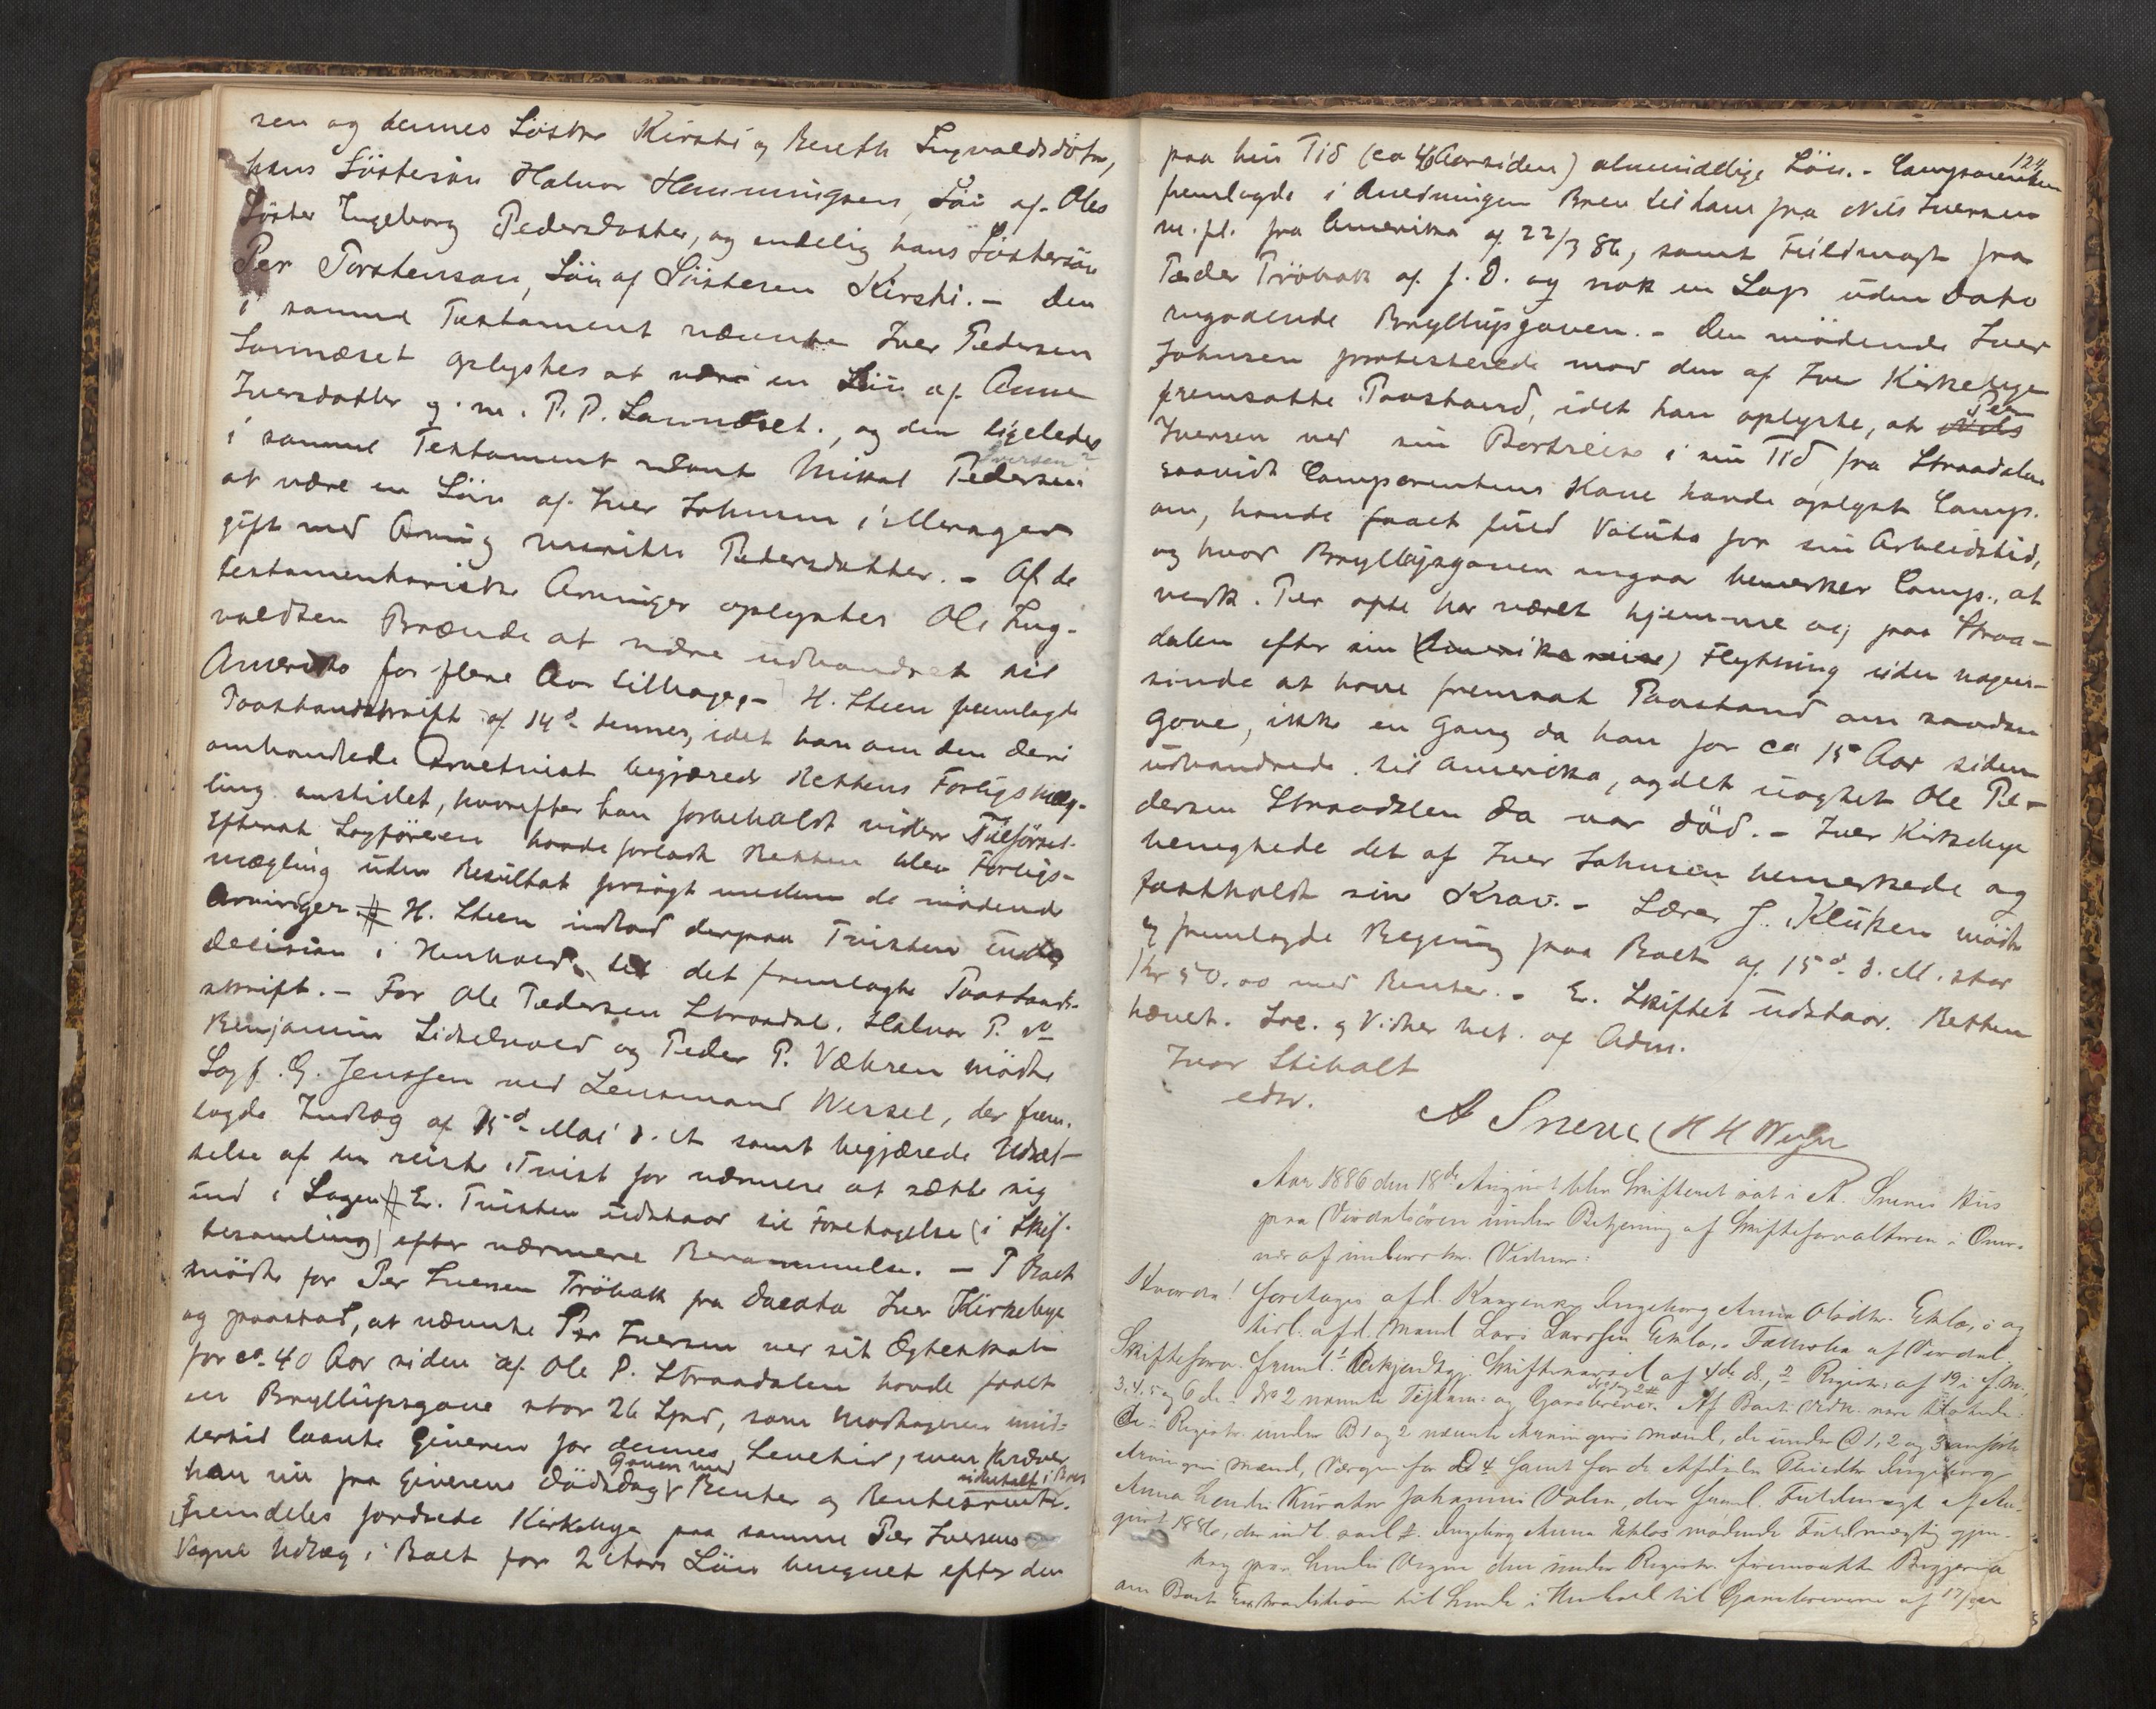 sen og dennes Söstre Kirsti og Bereth Ingvaldsdötre,
hans Söstersön Halvor Hemmingsen, Sön af Oles
Söster Ingeborg Pedersdatter, og endelig hans Söstersön
Per Torstensen, Sön af Sösteren Kirsti. — Den
i samme Testament nævnte Iver Pedersen
Lannæset oplystes at være en Sön af Anne
Iversdatter g. m. P. P. Lannæset., og den ligeledes
Iversen?
i samme Testament nævnt Mikal Pedersen
at være en Sön af Iver Johnsen i Merager
gift med Arving Marithe Pedersdatter. — Af de
testamentariske Arvinger oplystes Ole Ing-
valdsen Brænde at være udvandret til
Amerika for flere Aar tilbage, — H. Steen fremlagde
Paastandsskrift af 14de dennes, idet han om den deri
omhandlede Arvetvist begjærede Rettens Forligsmæg-
ling anstillet, hvorefter han forbeholdt videre Tilförsel.
Efterat Lagföreren havde forladt Retten blev Forligs-
mægling uden Resultat forsögt mellem de mödende
Arvinger # H. Steen indlod derpaa Tvisten under
decision i Henhold til det fremlagte Paastands-
skrift. — For Ole Pedersen Straadal, Halvor P. do
Benjamin Lidelvold og Peder P. Væhren mödte
Sagf. G. Jenssen ved Lensmand Wessel, der frem-
lagde Indlæg af 15de Mai d. A samt begjærede Udsæt-
telse af den reiste Tvist for nærmere at sætte sig
ind i Sagen # Er. Tvisten udstaar til Foretagelse (i Skif-
tesamling) efter nærmere Berammelse. — I Boet
mödte for Per Iversen Tröbak fra Dacota Iver Kirkebye
og paastod, at nævnte Per Iversen ved sit Ægteskab
for ca. 40 Aar siden af Ole P. Straadalen havde faaet
en Bryllupsgave stor 26 Spd, som Modtageren imid-
lertid laante Giveren for dennes Levetid, men kræver
Gaven med
han nu fra Giverens Dödsdag Renter og Rentesrente.
udbetalt i Boet
Fremdeles fordrede Kirkebye paa samme Per Iversens
Vegne Udlæg i Boet for 2 Aars Lön beregnet efter den
124
paa hin Tid (ca 40 Aar siden) almindelige Lön. — Comparenten
fremlagde i Anledningen Brev til ham fra Nils Iversen
m. fl. fra Amerika af 22/3 86, samt Fuldmagt fra
Peder Tröbak af s. D. og nok en Lap uden Dato
angaaende Bryllupsgaven. — Den mödende Iver
Johnsen protesterede mod den af Iver Kirkebye
Per
fremsatte Paastand, idet han oplyste, at Nils
Iversen ved sin Bortreise i sin Tid fra Straadalen
saavidt Comparentens Kone havde oplyst Comp.
om, havde faaet fuld Valuta for sin Arbeidstid,
og hvad Bryllupsgaven angaar bemerker Comp., at
vedk. Per ofte har været hjemme og paa Straa-
dalen efter sin (Amerikareise) Flytning uden nogen-
sinde at have fremsat Paastand om saadan
Gave, ikke en Gang da han for ca 15 Aar siden
udvandrede til Amerika, og det uagtet Ole Pe-
dersen Straadalen da var död. — Iver Kirkebye
benegtede det af Iver Johnsen bemerkede og
fastholdt sine Krav. — Lærer J. Klüken mödte
og fremlagde Regning paa Boet af 15de d. M. stor
Kr 50.00 med Renter. — Er. Skiftet udstaar. Retten
hævet. Loc. og Vidner bet. af Adm.
Ivar Stiholt
edsv.
A Snerve H H Wessel
Aar 1886 den 18de August blev Skifteret sat i A. Sneves Hus
paa Værdalsören under Betjening af Skifteforvalteren i Over-
vær af underskr. Vidner:
Hvorda! foretages afd. Kaarenke Ingeborg Anna Olsdtr. Eklo, og
tidl. afd. Mand Lars Larssen Eklo,. Fællesbo af Værdal.
Skifteforv. freml. 1 Bekjendtgj. Skiftevarsel af 4de ds., 2 Registr. af 19 i f. M.,
3, 4, 5 og 6 de i No 2 nævnte Testam. og Gavebreve. Af Boets Vedk. vare tilstede
de i Registr. under B 1 og 2 nævnte Arvingers Mænd, de under C 1, 2 og 3 anförte
Arvingers Mænd, Værgen for D 4 samt for de Afdödes Pleiedtr. Ingeborg
Anna hendes Kurator Johannes Volen, der freml. Fuldmagt af Au-
gust 1886, der indl. Ingeborg Anna Eklos mödende Fuldmægtig gjen-
tog paa hendes Vegne den under Registr. fremsatte Begjering
om Boets Extradition til hende i Henhold til Gavebrevene af 17/